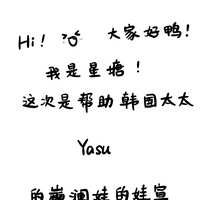 Hi! 大家好鸭!
我是星塘!
这次是帮助韩国太太
Yasu
的巍澜娃的娃宣